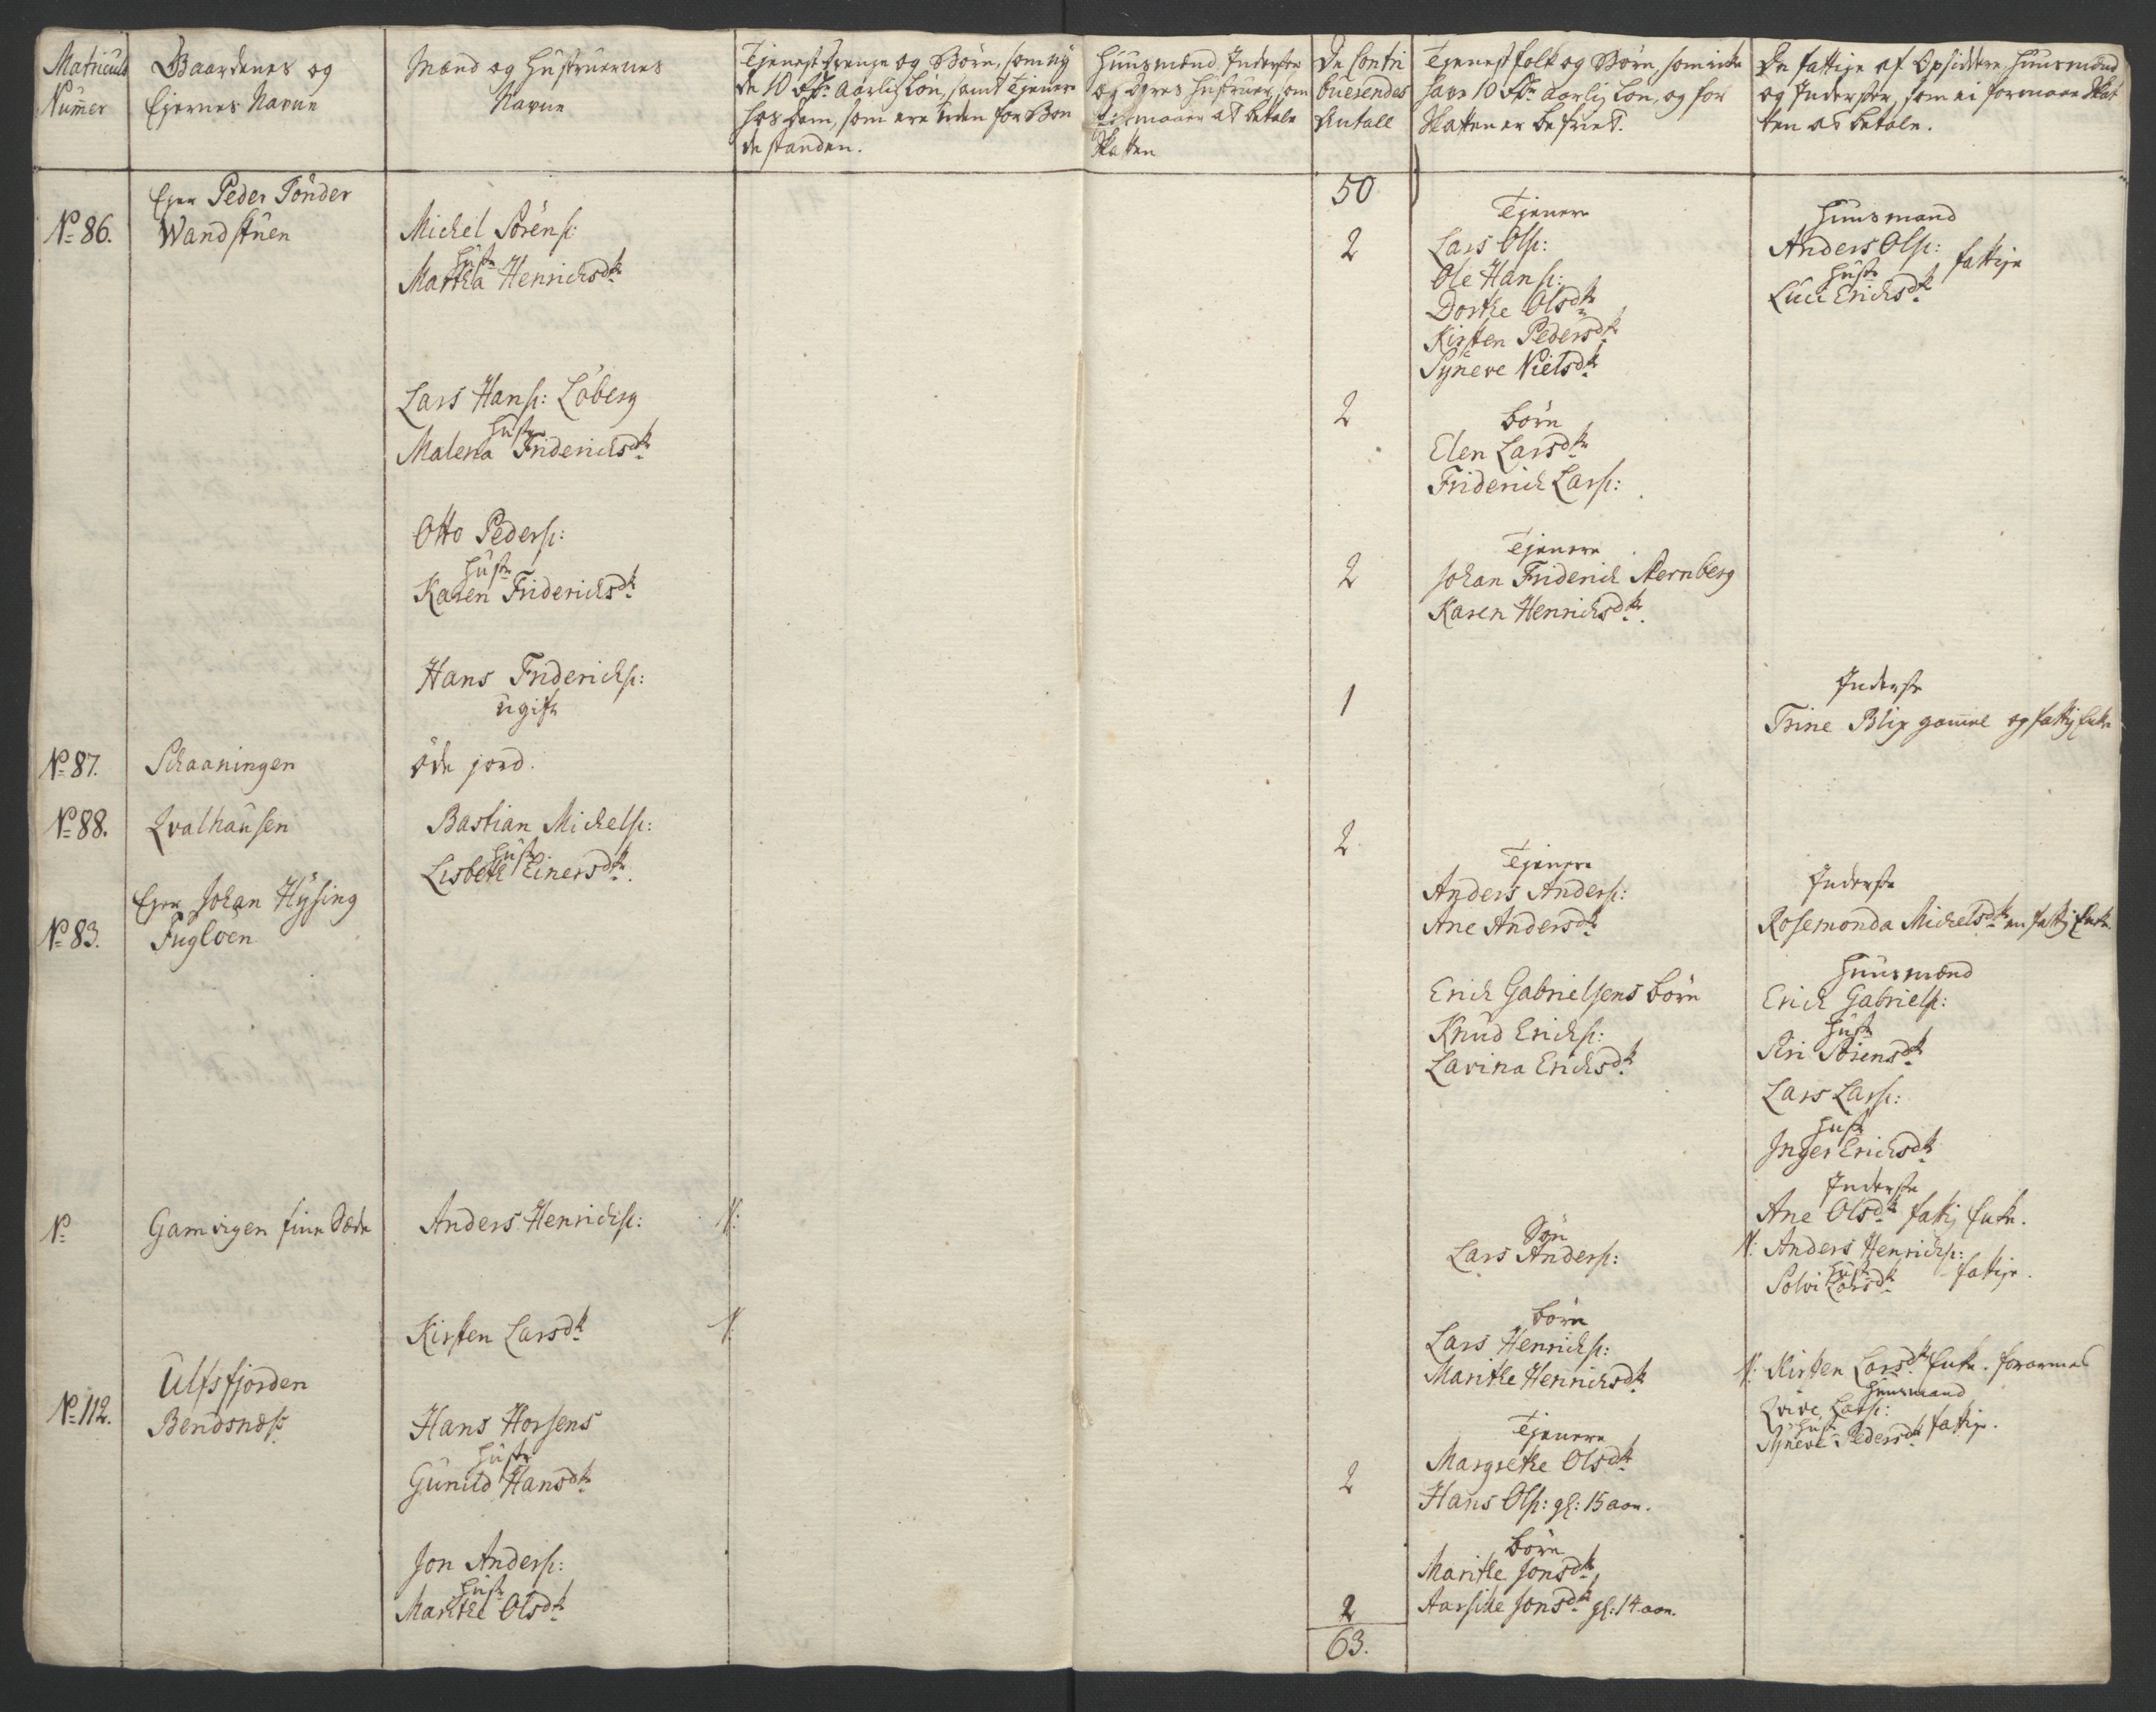 Matriculs Numer
Gaardenes og Ejernes Navne
Mænd og Hustruernes Navne
Tjeneste Drenge og Börn, som ny
de 10 Rdr Aarlig Lön, samt Tjenere
hos dem, som ere uden for Bon
de standen.
Huusmænd Inderster
og deres Hustruer, som
formaaer at betale
Skatten
De Contri
buerendes
Antall
Tjenestfolk og Börn, som ikke
have 10 Rdr Aarlig Lön, og for
Skatten er befriet.
De fattige af Opsiddere, Huusmænd
og Inderster, som ei formaaer Skat
ten at betale.
50
Ejer Peder Tönder
No 86. Wandstuen
Michel Sörens:
Hustr
Martha Henrichsdtr
2
Tjenere
Lars Ols:
Ole Hans:
Dorthe Olsdtr
Kirsten Pedersdtr
Syneve Nielsdtr
Huusmand
Anders Ols:
Hustr fattige
Luci Erichsdtr
Lars Hans: Löberg
Hustr
Malena Friderichsdtr
2
Börn
Elen Larsdtr
Friderich Lars:
Otto Peders:
Hustr
Karen Friderichsdtr
2
Tjenere
Johan Friderich Sternberg
Karen Henrichsdtr
Hans Friderichs:
ugift
1
Inderste
Trine Blix gammel og fattig Enke
No 87. Schaaningen öde jord.
No 88. Qvalhausen
Bastian Michels:
Hustr
Lisbeth Einersdtr.
2
Tjenere
Anders Anders:
Ane Andersdtr
Inderste
Rosemonda Michelsdtr en fattig Enke
Ejer Johan Hysing
No 83. Fugloen
Erich Gabrielsens Börn
Knud Erichs:
Lavina Erichsdtr
Huusmænd
Erich Gabriels:
Hustr
Siri Sörensdtr
Lars Lars:
Hustr
Inger Erichsdtr
Inderste
Ane Olsdtr fattig Enke.
No Gamvigen finne Sæde Anders Henrichs: N:
Sön
Lars Anders:
N: Anders Henrichs:
Hustr fattige.
Solvi Larsdtr
Kirsten Larsdtr N:
Börn
Lars Henrichs:
Marithe Henrichsdtr
N: Kirsten Larsdtr Enke. forarmed
Huusmand
Qvive Lars:
Hustr
Syneve Pedersdtr fattige.
Ulfsfjorden
No 112. Bendsnæs
Hans Horsens
Hustr
Gunild Hansdtr
2
Tjenere
Margrethe Olsdtr
Hans Ols: gl: 15 aar.
Jon Anders:
Hustr
Marithe Olsdtr
2
Börn
Marithe Jonsdtr
Jonsdtr gl: 14 aar.
63.